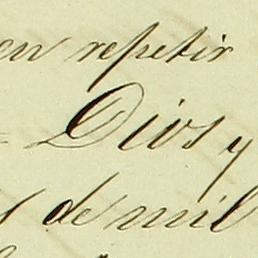 en repetir
Dios y
de mil